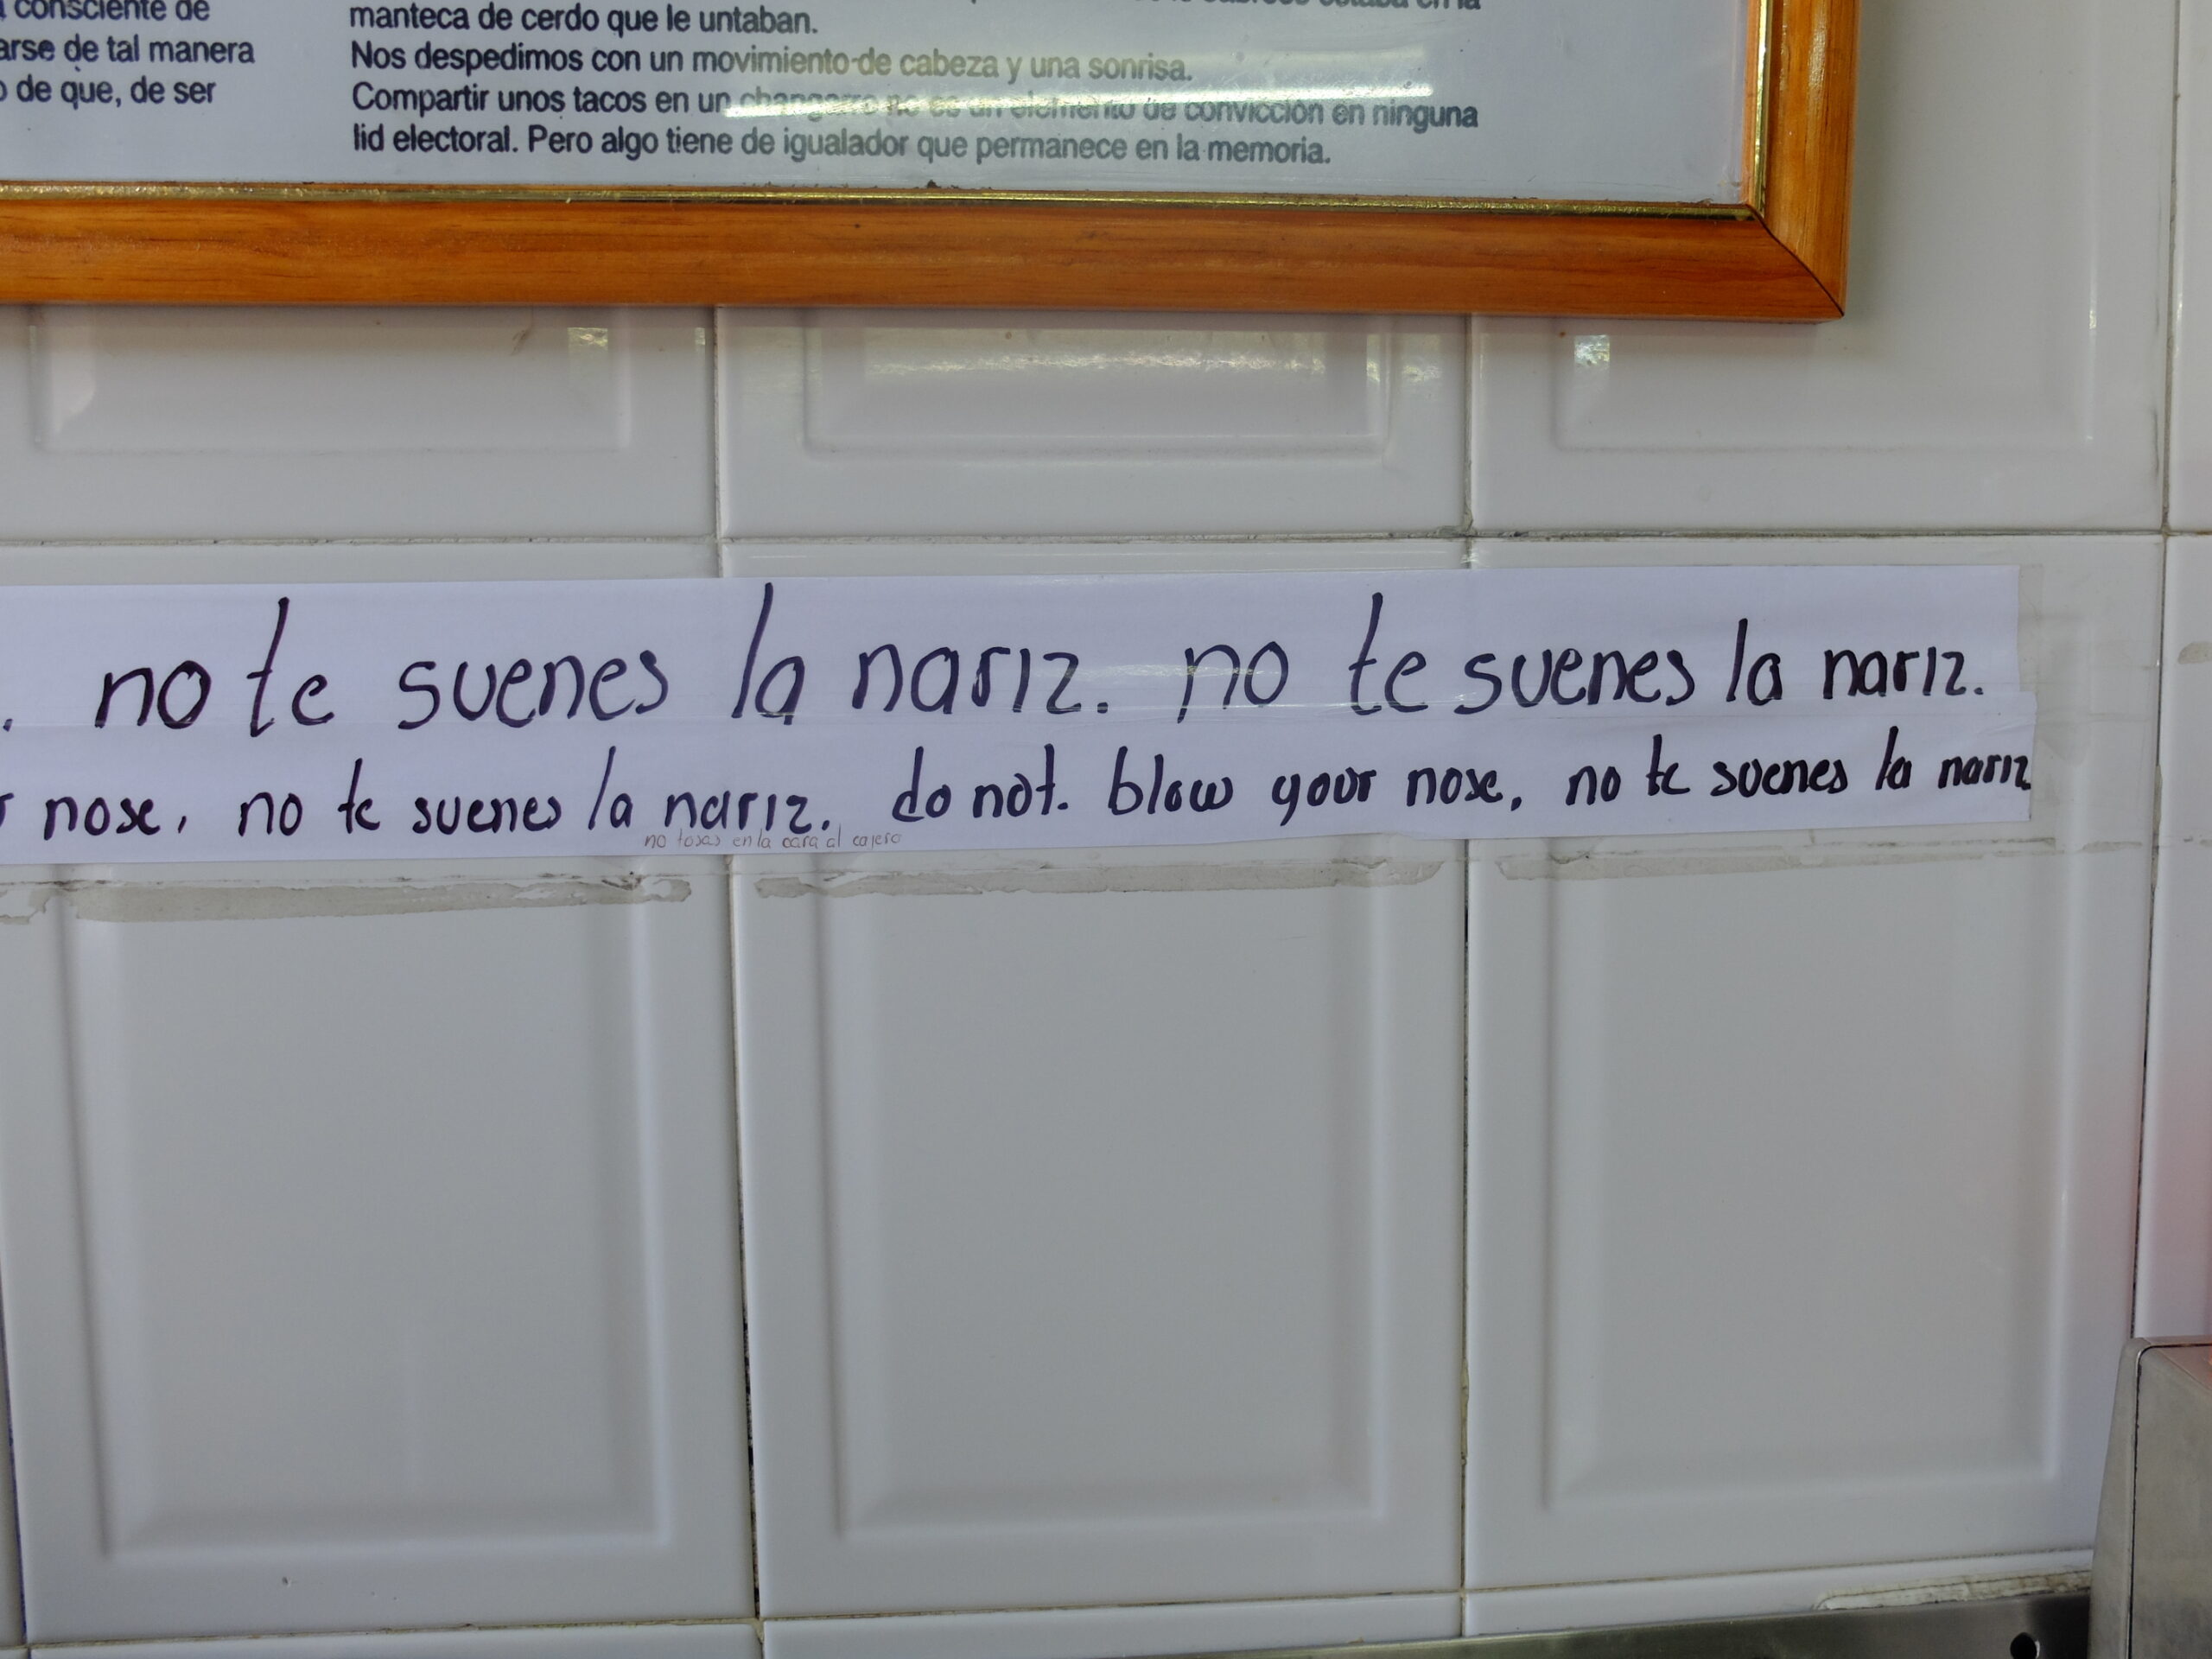 consciente de
arse de tal manera
de que, de ser
manteca de cerdo que le untaban.
Nos despedimos con un movimiento de cabeza y una sonrisa.
Compartir unos tacos en un changarro no es un elemento de convicción en ninguna
lid electoral. Pero algo tiene de igualador que permanece en la memoria.
. no te suenes la nariz. no te suenes la nariz.
nose, no te suenes la nariz. do not. blow your nose, no te suenes la nariz
no tosas en la cara al cajero